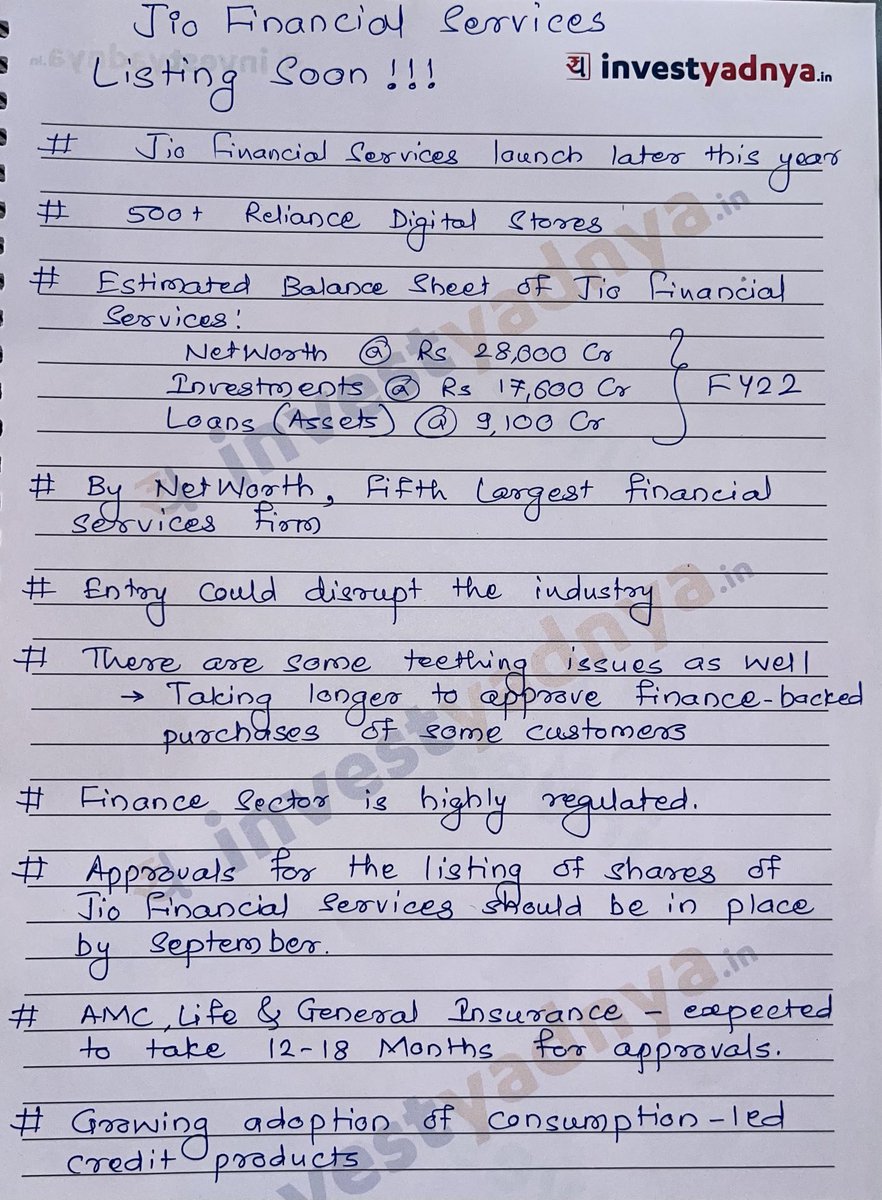 Jio Financial Services
Listing Soon !!!
य investyadnya.in
# Jio Financial Services launch later this year
# 500+ Reliance Digital Stores
# Estimated Balance Sheet of Jio Financial
Services:
NetWorth @ Rs 28,000 Cr
Investments @ Rs 17,600 Cr } FY22
Loans (Assets) @ 9,100 Cr
# By NetWorth, Fifth Largest financial
services firm
# Entry could disrupt the industry
# There are some teething issues as well
→ Taking longer to approve finance-backed
purchases of some customers
# Finance Sector is highly regulated.
# Approvals for the listing of shares of
Jio Financial Services should be in place
by September.
# AMC, Life & General Insurance - expected
to take 12-18 Months for approvals.
# Growing adoption of consumption-led
credit products
investyadnya.in
investyadnya.in
investyadnya.in